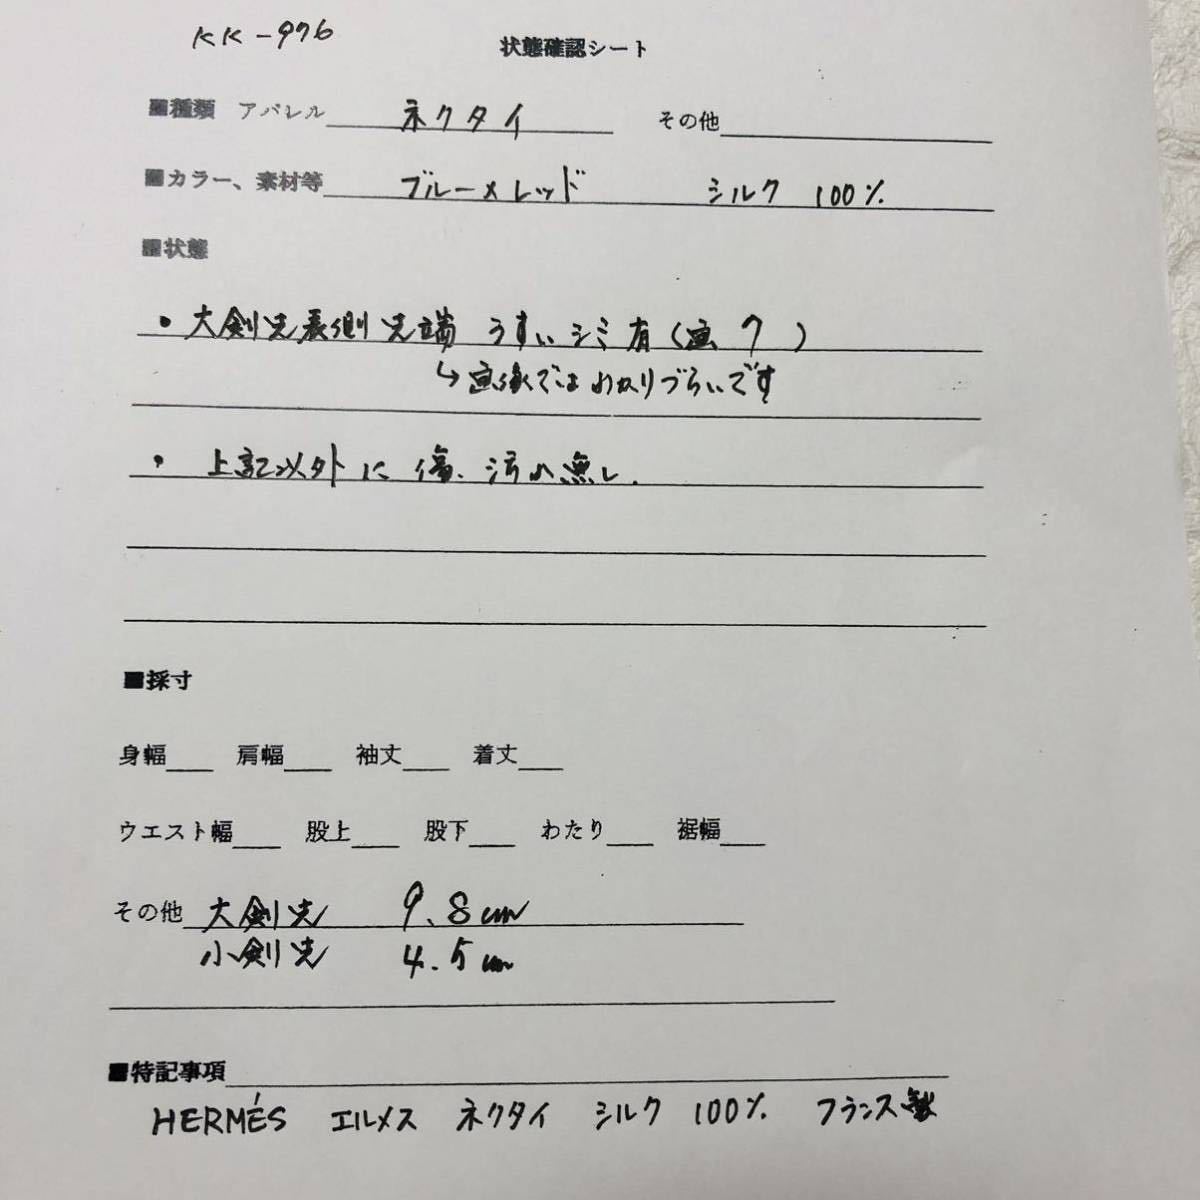 KK-976
状態確認シート
■種類 アパレル ネクタイ その他
■カラー、素材等 ブルー×レッド シルク 100%
■状態
・大剣先表側先端 うすいシミ有(画 7 )
↳画像ではわかりづらいです
・上記以外に傷、汚れ無し.
■採寸
身幅 肩幅 袖丈 着丈
ウエスト幅 股上 股下 わたり 裾幅
その他 大剣先 9.8cm
小剣先 4.5cm
■特記事項
HERMÉS エルメス ネクタイ シルク 100% フランス製